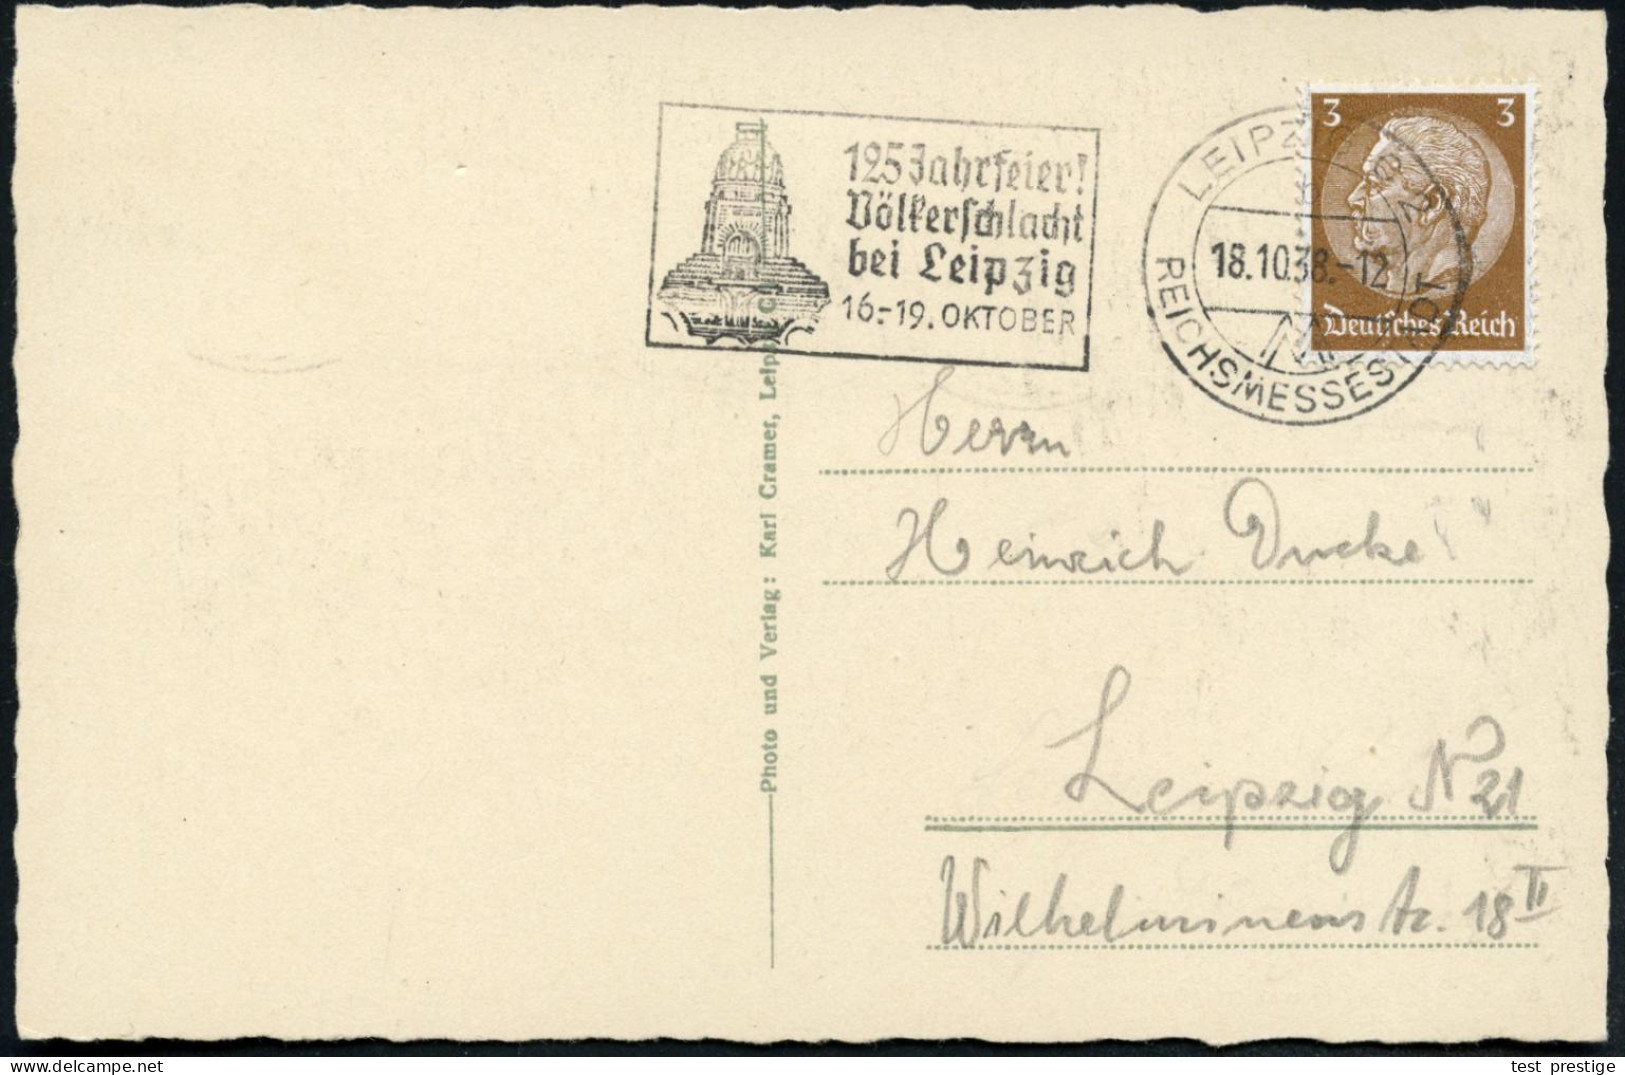 125 Jahrfeier!
Völkerschlacht
bei Leipzig
16.-19. OKTOBER
LEIPZIG C 2
18.10.38.-12
REICHSMESSESTADT
3 3
Deutsches Reich
Herrn
Heinrich Ducke
Leipzig N 21
Wilhelminenstr. 18 II
Photo und Verlag: Karl Cramer, Leipzig
test prestige